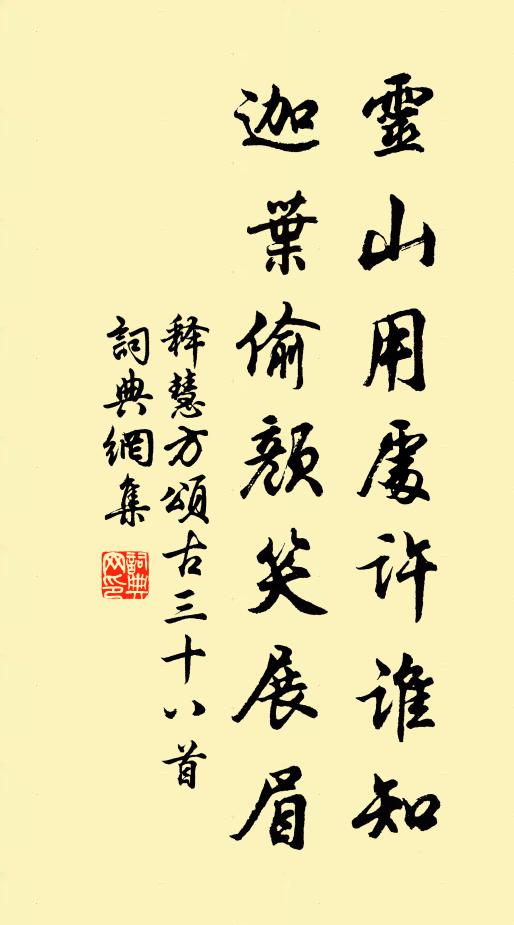 靈山用處許誰知
迦葉偷顏笑展眉
释慧方頌古三十八首
詞典網集
詞典网印